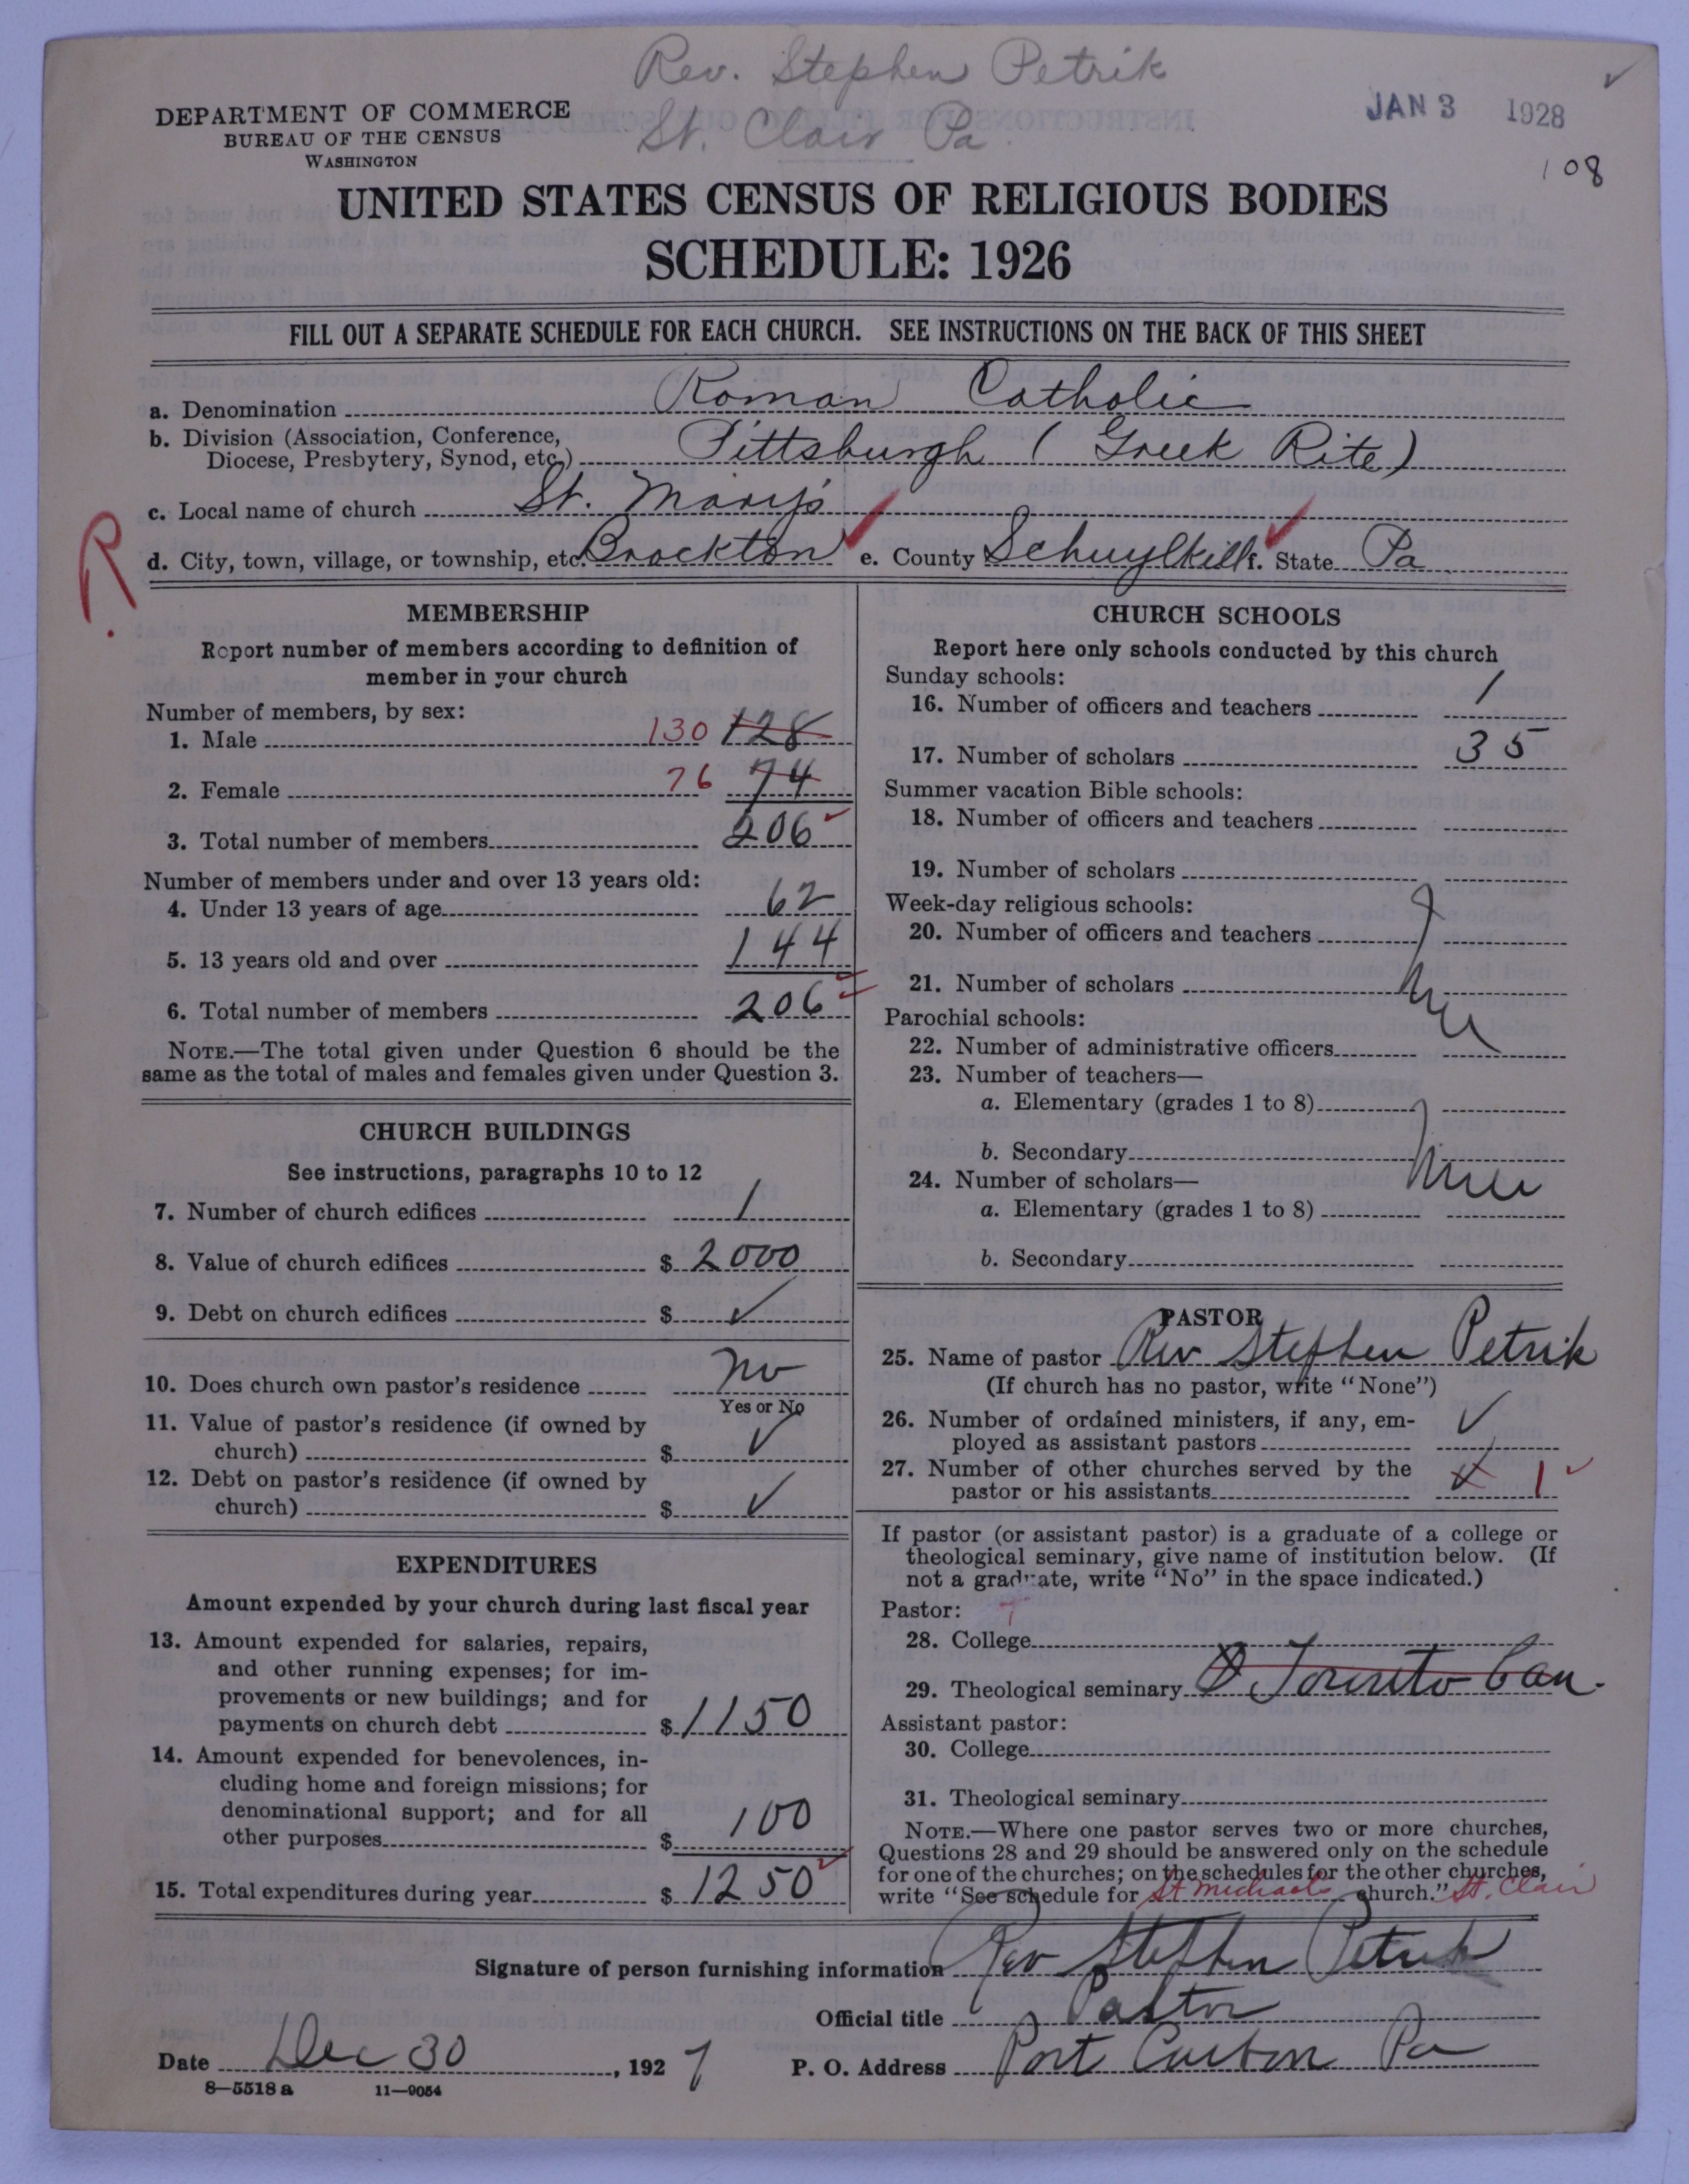 Rev. Stephen Petrik
St. Clair Pa.
JAN 3 1928
108
DEPARTMENT OF COMMERCE
BUREAU OF THE CENSUS
WASHINGTON
UNITED STATES CENSUS OF RELIGIOUS BODIES
SCHEDULE: 1926
FILL OUT A SEPARATE SCHEDULE FOR EACH CHURCH. SEE INSTRUCTIONS ON THE BACK OF THIS SHEET
a. Denomination Roman Catholic
b. Division (Association, Conference,
Diocese, Presbytery, Synod, etc.) Pittsburgh (Greek Rite)
c. Local name of church St. Mary's
R.
d. City, town, village, or township, etc. Brockton e. County Schuylkill f. State Pa
MEMBERSHIP
Report number of members according to definition of
member in your church
Number of members, by sex:
1. Male 130 128
2. Female 76 74
3. Total number of members 206
Number of members under and over 13 years old:
4. Under 13 years of age 62
5. 13 years old and over 144
6. Total number of members 206
NOTE.—The total given under Question 6 should be the
same as the total of males and females given under Question 3.
CHURCH BUILDINGS
See instructions, paragraphs 10 to 12
7. Number of church edifices 1
8. Value of church edifices $ 2000
9. Debt on church edifices $ ✓
10. Does church own pastor's residence no
Yes or No
11. Value of pastor's residence (if owned by
church) $ ✓
12. Debt on pastor's residence (if owned by
church) $ ✓
EXPENDITURES
Amount expended by your church during last fiscal year
13. Amount expended for salaries, repairs,
and other running expenses; for im-
provements or new buildings; and for
payments on church debt $ 1150
14. Amount expended for benevolences, in-
cluding home and foreign missions; for
denominational support; and for all
other purposes $ 100
15. Total expenditures during year $ 1250
CHURCH SCHOOLS
Report here only schools conducted by this church
Sunday schools:
16. Number of officers and teachers 1
17. Number of scholars 35
Summer vacation Bible schools:
18. Number of officers and teachers
19. Number of scholars
Week-day religious schools:
20. Number of officers and teachers
21. Number of scholars
Parochial schools:
22. Number of administrative officers
23. Number of teachers—
a. Elementary (grades 1 to 8)
b. Secondary
24. Number of scholars—
a. Elementary (grades 1 to 8)
b. Secondary
PASTOR
25. Name of pastor Rev Stephen Petrik
(If church has no pastor, write "None")
26. Number of ordained ministers, if any, em-
ployed as assistant pastors ✓
27. Number of other churches served by the
pastor or his assistants 1
If pastor (or assistant pastor) is a graduate of a college or
theological seminary, give name of institution below. (If
not a graduate, write "No" in the space indicated.)
Pastor:
28. College
29. Theological seminary Toronto Can.
Assistant pastor:
30. College
31. Theological seminary
NOTE.—Where one pastor serves two or more churches,
Questions 28 and 29 should be answered only on the schedule
for one of the churches; on the schedules for the other churches,
write "See schedule for St Michaels church." St. Clair
Signature of person furnishing information Rev Stephen Petrik
Official title Pastor
Date Dec 30, 1927 P. O. Address Port Carbon Pa
8—5518 a 11—9054